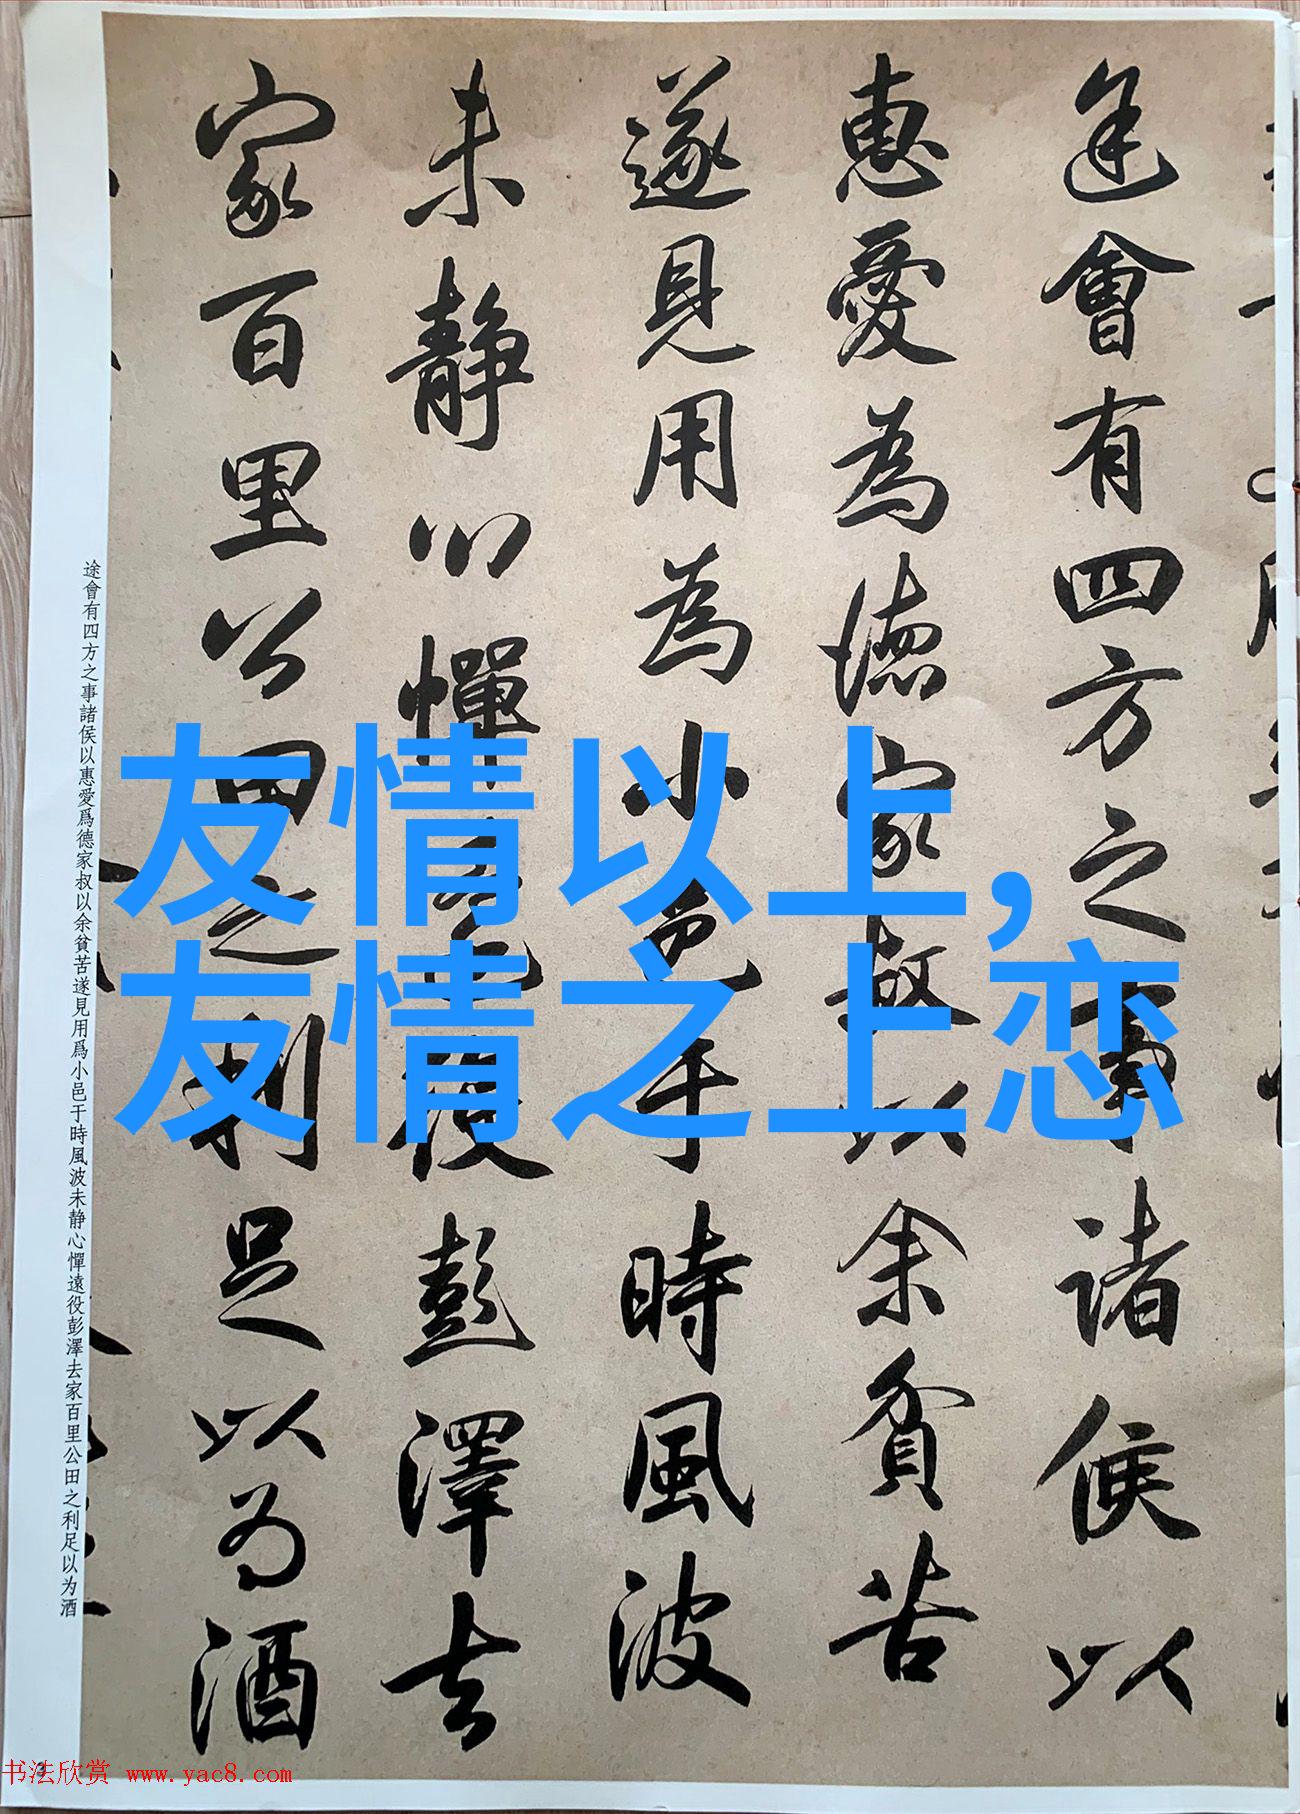 友情以上,
友情之上恋
途會有四方之事諸侯以
惠愛為德家叔以余貧苦
遂見用為小邑于時風波
未静心憚遠役彭澤去
家百里公田之利足以為酒
途會有四方之事諸侯以惠愛爲德家叔以余貧苦遂見用爲小邑于時風波未静心憚遠役彭澤去家百里公田之利足以为酒
书法欣赏 www.yac8.com